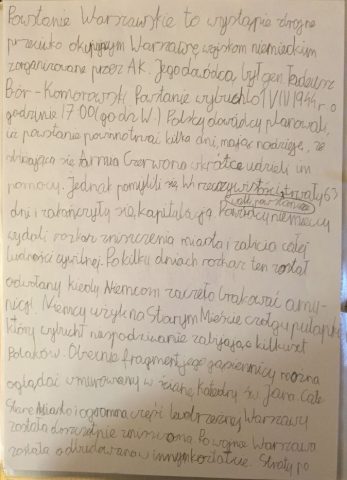 Powstanie Warszawskie to wystąpie zbrojne
przeciwko okupującym Warszawę wojskom niemieckim
zorganizowane przez AK. Jego dowódcą był gen Tadeusz
Bór-Komorowski Powstanie wybuchło 1 VIII 1944r. o
godzinie 17:00 (godz W.) Polscy dowódcy planowali,
iż powstanie powinno trwać kilka dni, mając nadzieję, że
zbliżająca się Armia Czerwona wkrótce udzieli im
pomocy. Jednak pomylili się. W rzeczywistości trwały 63
walki powstańcze
dni i zakończyły się kapitulacją Dowódcy niemieccy
wydali rozkaz zniszczenia miasta i zabicia całej
ludności cywilnej. Po kilku dniach rozkaz ten został
odwołany kiedy Niemcom zaczęło brakować amu-
nicji. Niemcy użyli na Starym Mieście czołgu pułapki
który wybuchł niespodziewanie zabijając kilkuset
Polaków. Obecnie fragment jego gąsiennicy można
oglądać wmurowany w ścianę Katedry św. Jana. Całe
Stare Miasto i ogromna część lewobrzeżnej Warszawy
została doszczętnie zniszczona. Po wojnie Warszawa
została odbudowana w innym kształcie. Straty po